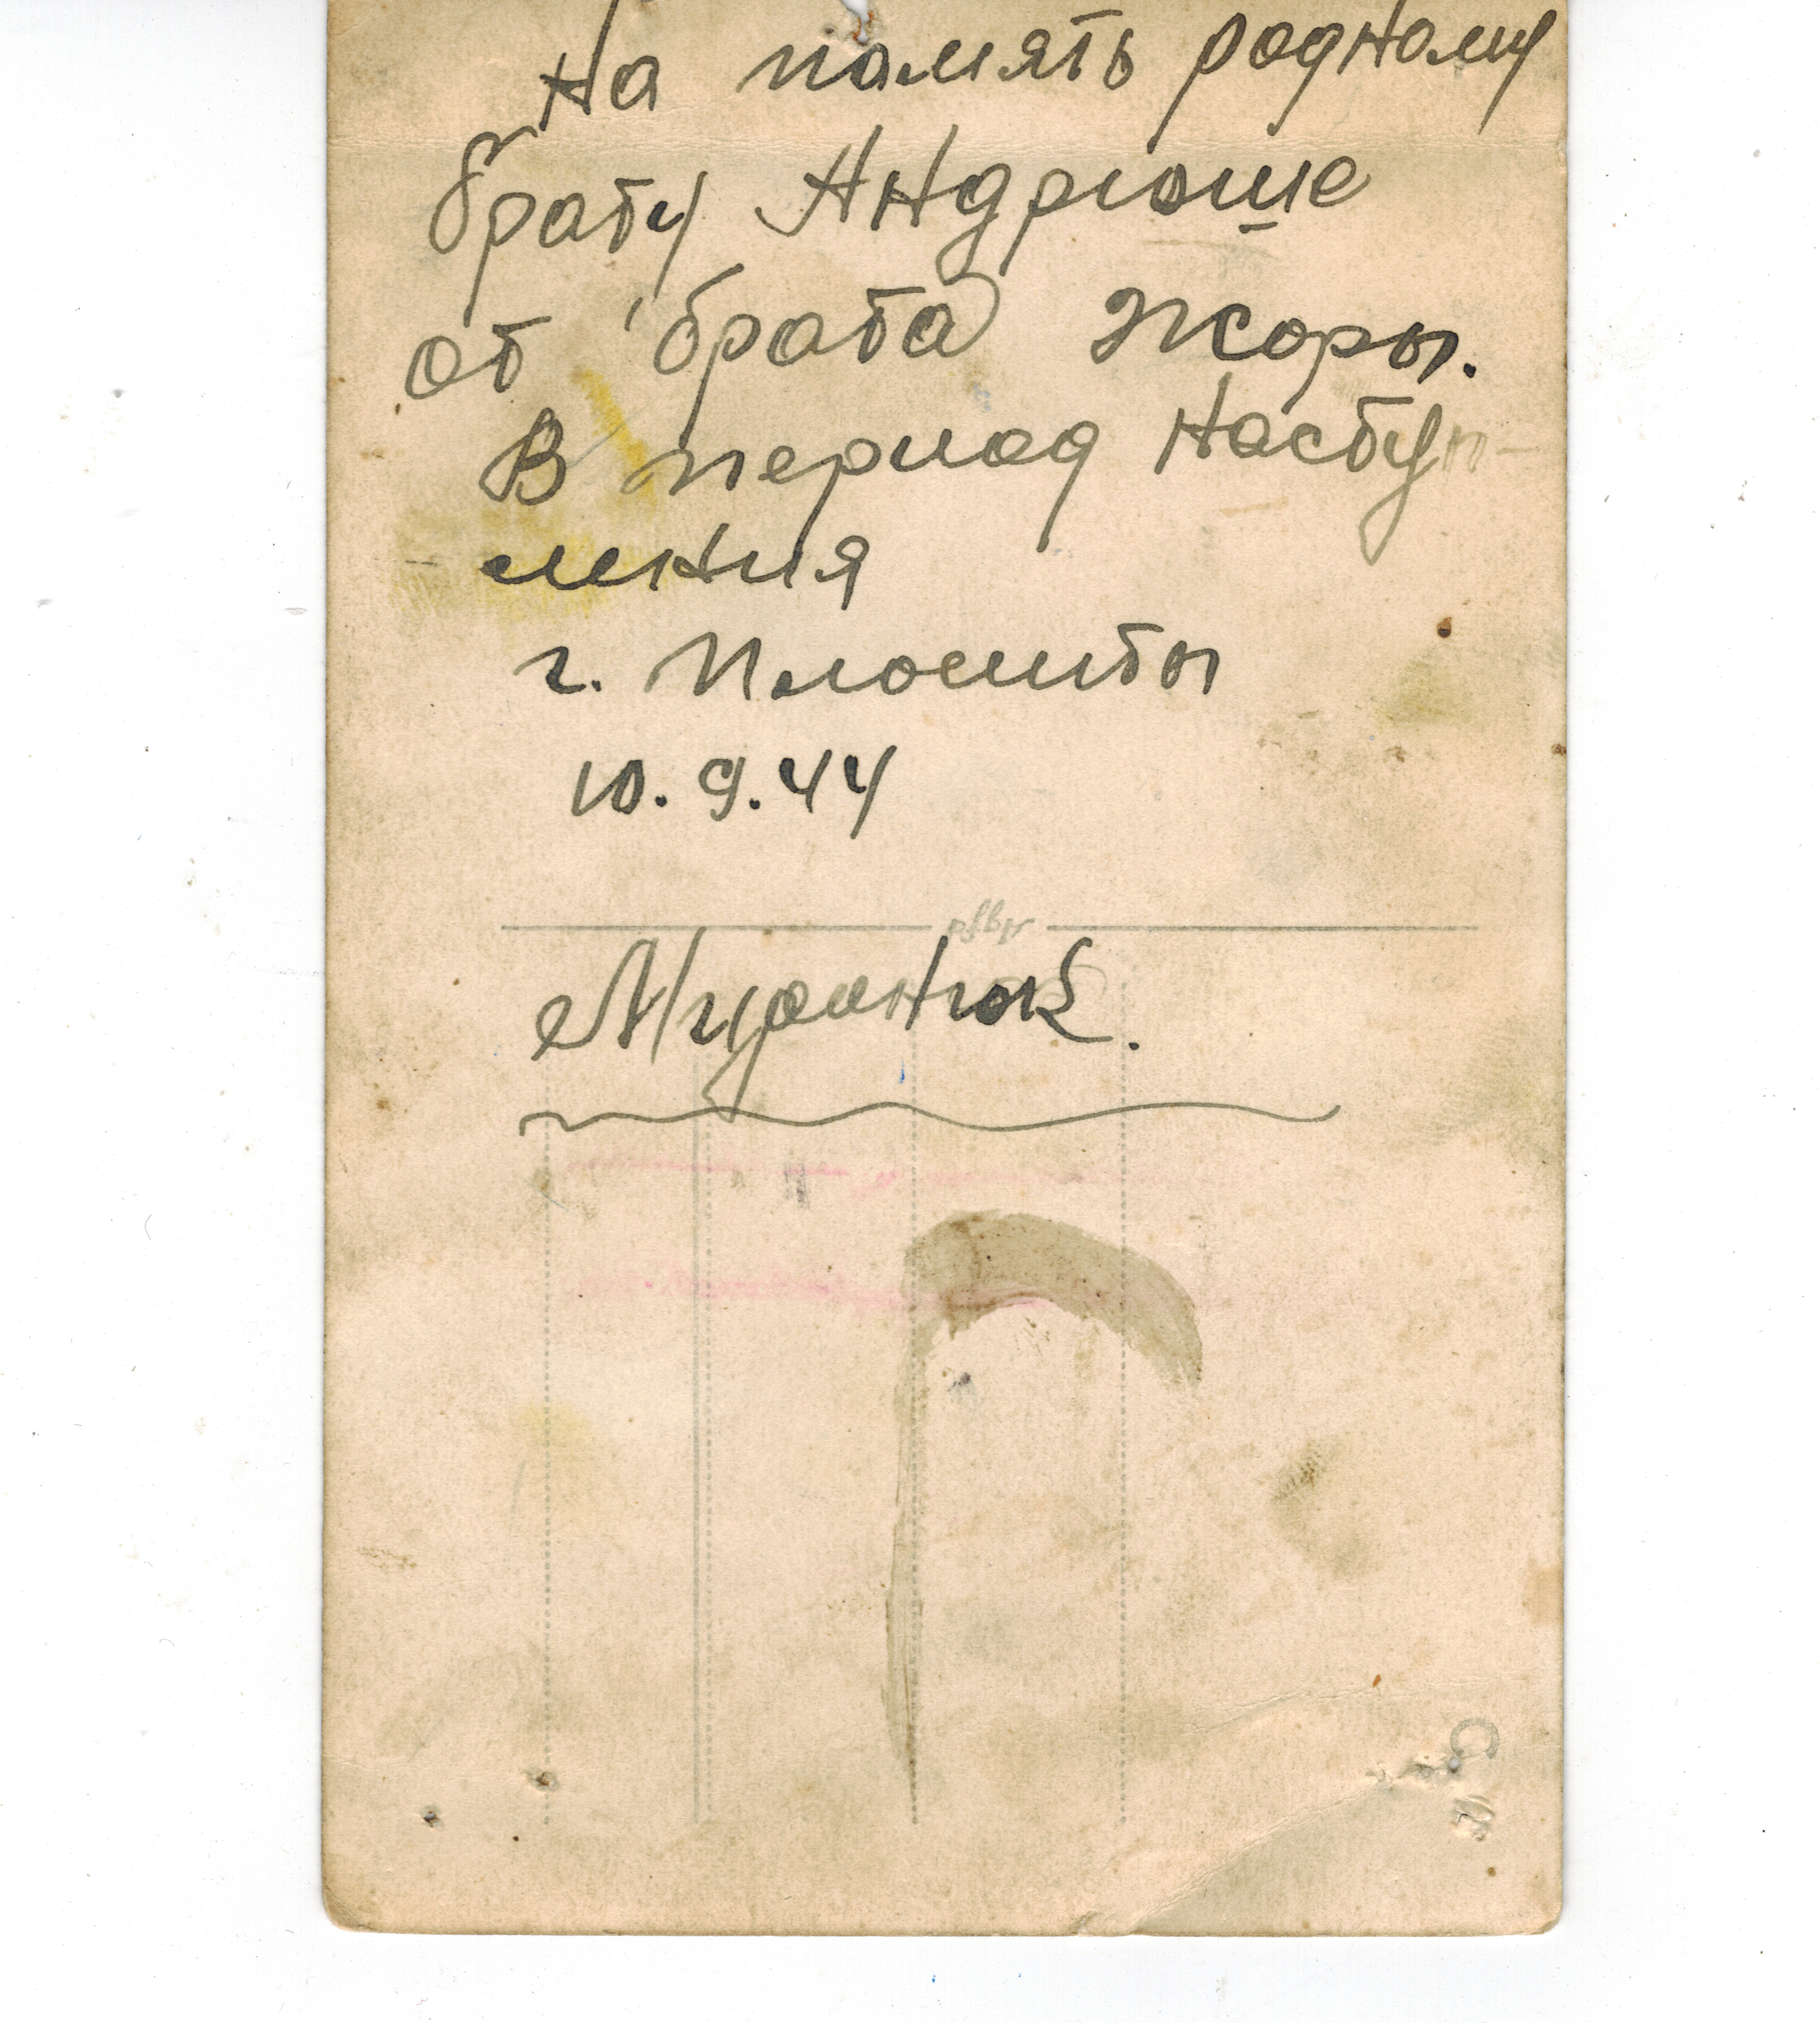 На память родному
брату Андрюше
от брата Жоры.
В период наступ-
ления
г. Плоешты
10.9.44